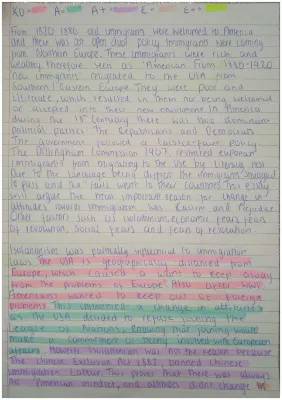 KU = A = A+ E = E++
From 1820-1880 old immigrants were welcomed to America
and there was an open door policy. Immigrants were coming
from Northern Europe. These immigrants were rich and
wealthy therefore seen as "American. From 1880-1920
new immigrants' migrated to the USA from
Southern/Eastern Europe. They were poor and
illiterate, which resulted in them not being welcomed
or accepted into their new environment in America
during the 18th Century there was two dominant
political parties. The Republicans and Democrats
The government followed a laissez-faire policy
The Dillingham Commission 1907, prevented European
immigrants from migrating to the USA by literacy test
Due to the language being different the immigrants struggled
to pass and the fails went to their countries. This essay
will argue the most important reason for change in
attitudes towards immigration was Racism and Prejudice.
Other factors such as isolationism, economic fears, fears
of revolution, social fears and fears of revolution
Isolationism was partially influential to immigration
laws. The USA is geographically distanced from
Europe, which caused a want to keep away
from the problems of Europe. After WW1
Americans wanted to keep out of foreign
problems. This influenced a change in attitudes
as the USA decided to refuse joining the
League of Nations, knowing that joining would
make a commitment to being involved with European
affairs. However, Isolationism was not the reason because
The Chinese Exclusion Act 1882, banned Chinese
immigration Labour. This proves that there was always
an "American mindset, and attitudes didn't change